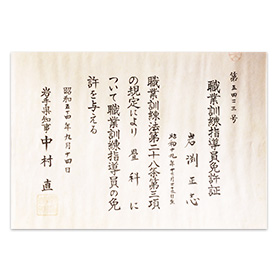 第五四二三号
職業訓練指導員免許証
岩渕正忠
昭和十九年十月二十三日生
職業訓練法第二十八条第三項
の規定により 畳科 に
ついて職業訓練指導員の免
許を与える
昭和五十四年九月十四日
岩手県知事 中村 直